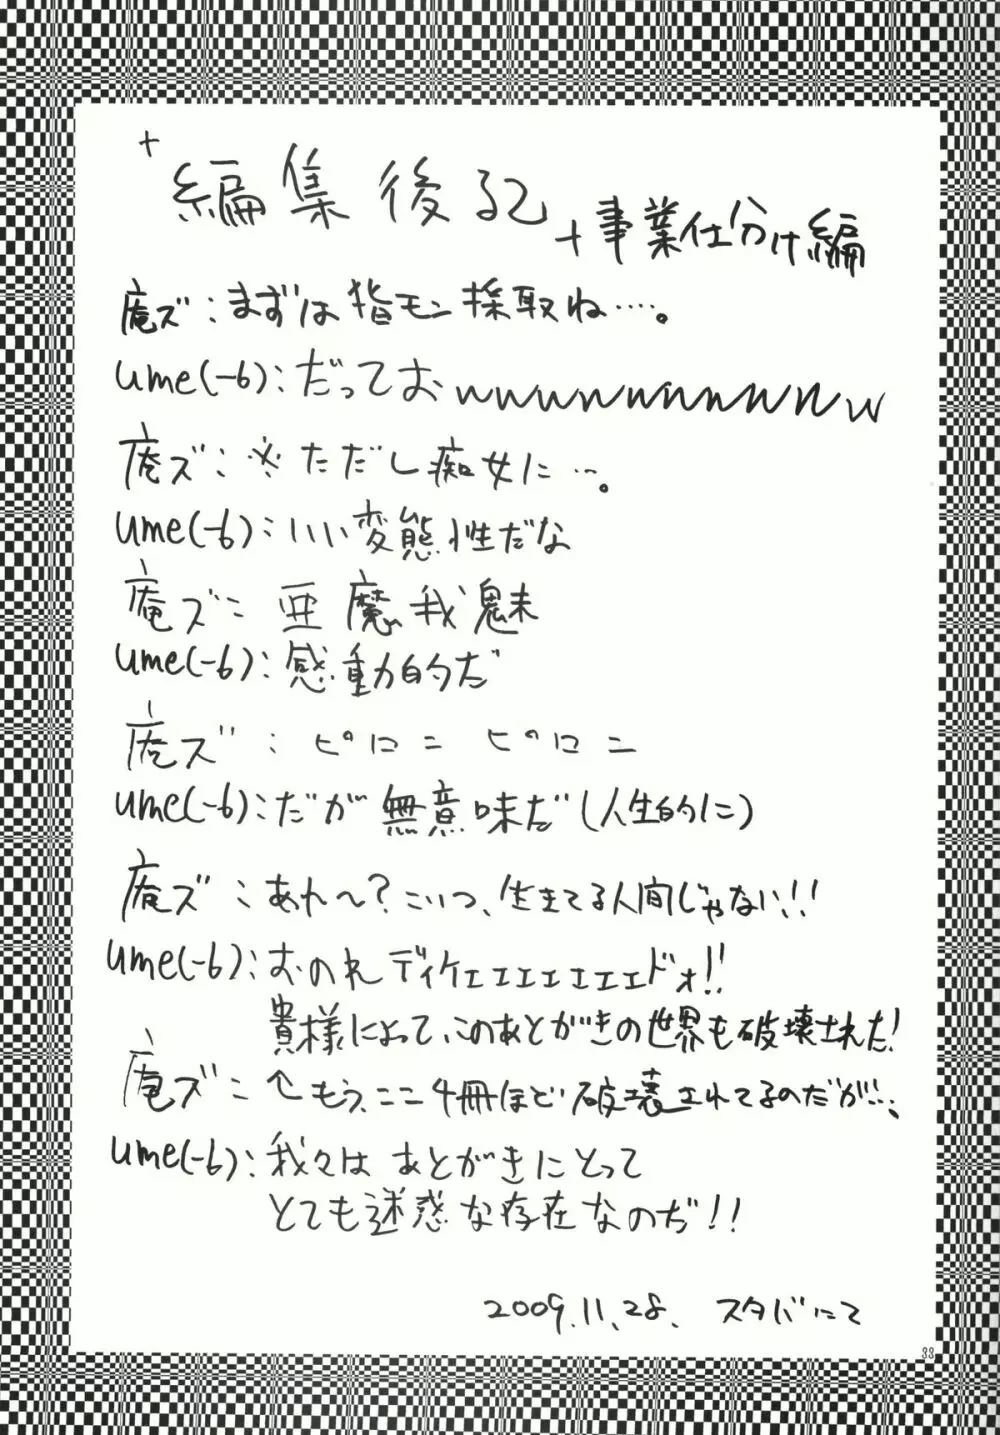 +編集後記
+事業仕分け編
庵ズ:まずは指モン採取ね……。
ume(-6):だっておwwwwwwwwwww
庵ズ:※ただし痴女に…。
ume(-6):いい変態性だな
庵ズ:亜魔我魅
ume(-6):感動的だ
庵ズ:ピロニ ピロニ
ume(-6):だが無意味だ(人生的に)
庵ズ:あれ〜?こいつ、生きてる人間じゃない!!
ume(-6):おのれディケェェェェェェドォ!!
貴様によって、このあとがきの世界も破壊された!
庵ズ:↑もう、ここ4冊ほど破壊されてるのだが…、
ume(-6):我々はあとがきにとって
とても迷惑な存在なのぢ!!
2009.11.28. スタバにて
33